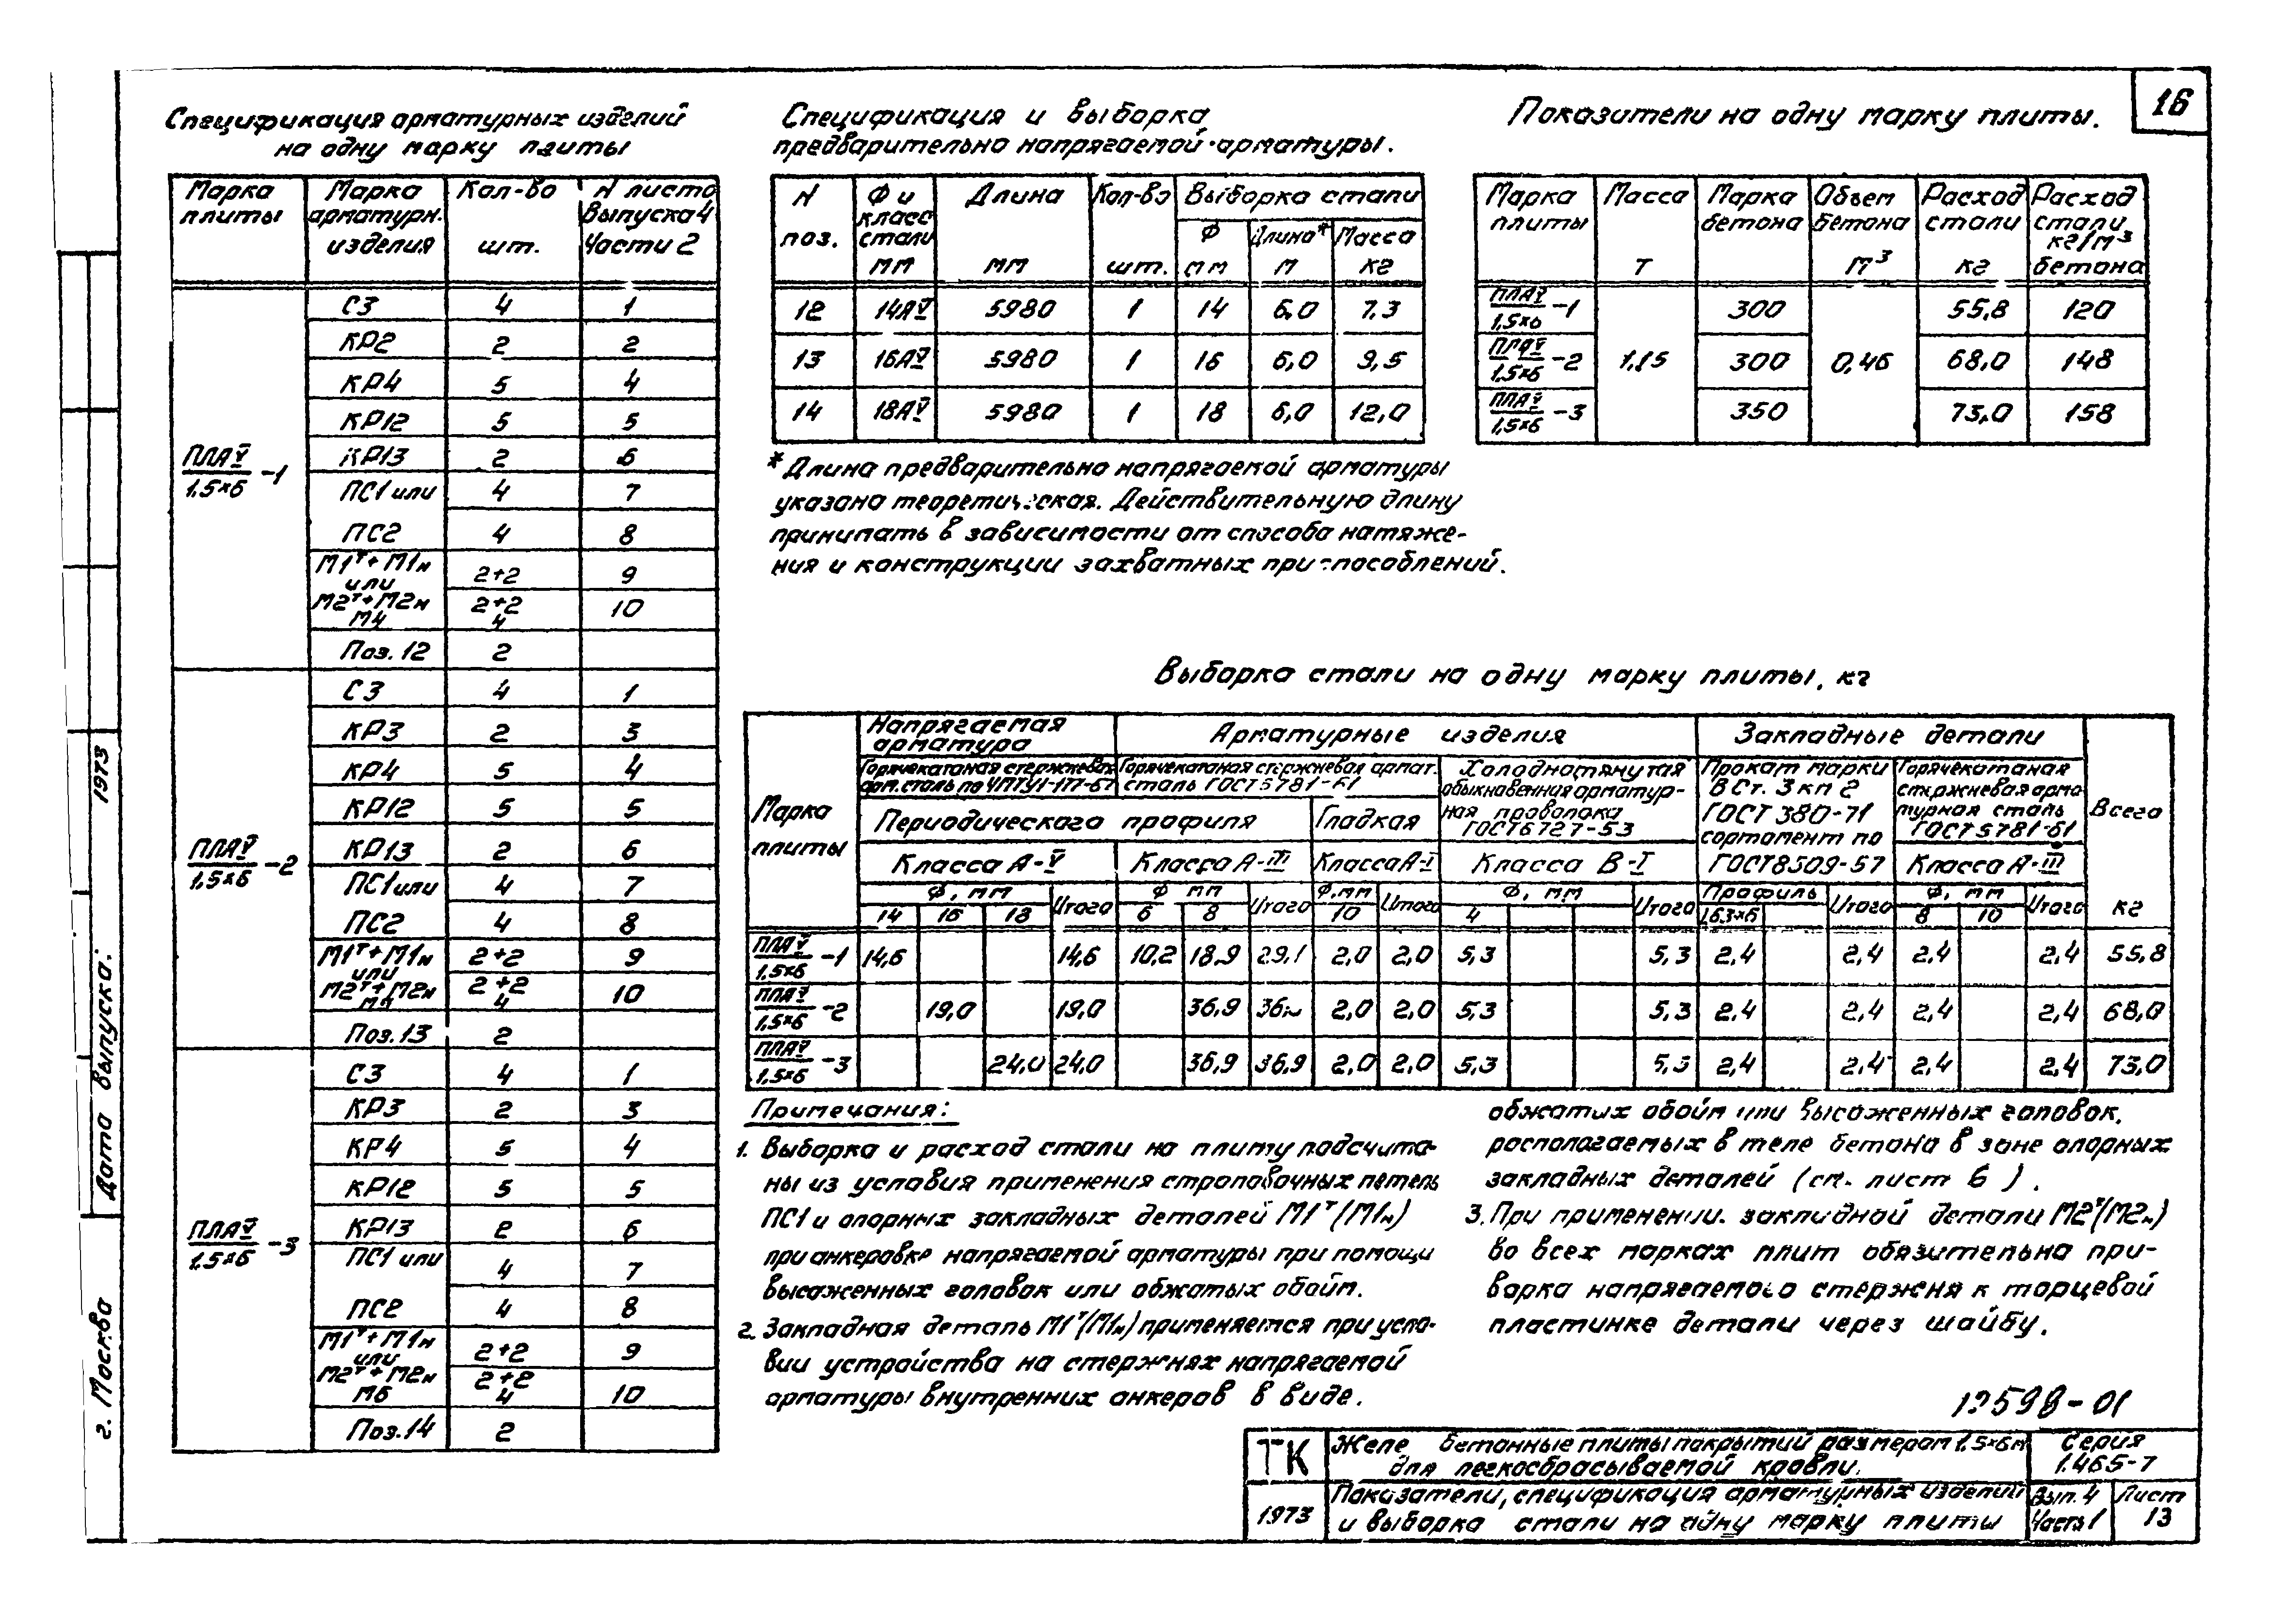 16
Спецификация арматурных изделий
на одну марку плиты
Марка плиты | Марка арматурн. изделия | Кол-во шт. | N листа Выпуска 4 Части 2
ПЛАV/1,5×6 -1 | С3 | 4 | 1
КР2 | 2 | 2
КР4 | 5 | 4
КР12 | 5 | 5
КР13 | 2 | 6
ПС1 или | 4 | 7
ПС2 | 4 | 8
М1т+М1н | 2+2 | 9
или
М2т+М2н | 2+2 | 10
М4 | 4
Поз. 12 | 2
ПЛАV/1,5×6 -2 | С3 | 4 | 1
КР3 | 2 | 3
КР4 | 5 | 4
КР12 | 5 | 5
КР13 | 2 | 6
ПС1 или | 4 | 7
ПС2 | 4 | 8
М1т+М1н | 2+2 | 9
или
М2т+М2н | 2+2 | 10
4
Поз. 13 | 2
ПЛАV/1,5×6 -3 | С3 | 4 | 1
КР3 | 2 | 3
КР4 | 5 | 4
КР12 | 5 | 5
КР13 | 2 | 6
ПС1 или | 4 | 7
ПС2 | 4 | 8
М1т+М1н | 2+2 | 9
или
М2т+М2н | 2+2 | 10
М6 | 4
Поз. 14 | 2
Спецификация и выборка
предварительно напрягаемой арматуры.
N поз. | Ф и класс стали мм | Длина мм | Кол-во шт. | Выборка стали
Ф мм | Длина* м | Масса кг
12 | 14АV | 5980 | 1 | 14 | 6,0 | 7,3
13 | 16АV | 5980 | 1 | 16 | 6,0 | 9,5
14 | 18АV | 5980 | 1 | 18 | 6,0 | 12,0
* Длина предварительно напрягаемой арматуры
указана теоретическая. Действительную длину
принимать в зависимости от способа натяже-
ния и конструкции захватных приспособлений.
Показатели на одну марку плиты.
Марка плиты | Масса т | Марка бетона | Объем бетона м³ | Расход стали кг | Расход стали кг/м³ бетона
ПЛАV/1,5×6 -1 | 1,15 | 300 | 0,46 | 55,8 | 120
ПЛАV/1,5×6 -2 | 300 | 68,0 | 148
ПЛАV/1,5×6 -3 | 350 | 73,0 | 158
Выборка стали на одну марку плиты, кг
Марка плиты | Напрягаемая арматура | Арматурные изделия | Закладные детали | Всего кг
Горячекатаная стержневая арм. сталь по ЧМТУ1-177-67 | Горячекатаная стержневая армат. сталь ГОСТ 5781-61 | Холоднотянутая обыкновенная арматурная проволока ГОСТ 6727-53 | Прокат марки В Ст. 3 кп 2 ГОСТ 380-71 сортамент по ГОСТ 8509-57 | Горячекатаная стержневая арматурная сталь ГОСТ 5781-61
Периодического профиля | Гладкая
Класса А-V | Класса А-III | Класса А-I | Класса В-I | Класса А-III
Ф, мм | Итого | Ф мм | Итого | Ф, мм | Итого | Ф, мм | Итого | Профиль | Итого | Ф, мм | Итого
14 | 16 | 18 | 6 | 8 | 10 | 4 | L63×6 | 8 | 10
ПЛАV/1,5×6 -1 | 14,6 | 14,6 | 10,2 | 18,9 | 29,1 | 2,0 | 2,0 | 5,3 | 5,3 | 2,4 | 2,4 | 2,4 | 2,4 | 55,8
ПЛАV/1,5×6 -2 | 19,0 | 19,0 | 36,9 | 2,0 | 2,0 | 5,3 | 5,3 | 2,4 | 2,4 | 2,4 | 2,4 | 68,0
ПЛАV/1,5×6 -3 | 24,0 | 24,0 | 36,9 | 36,9 | 2,0 | 2,0 | 5,3 | 5,3 | 2,4 | 2,4 | 2,4 | 2,4 | 73,0
Примечания:
1. Выборка и расход стали на плиту подсчита-
ны из условия применения строповочных петель
ПС1 и опорных закладных деталей М1т(М1н)
при анкеровке напрягаемой арматуры при помощи
высаженных головок или обжатых обойм.
2. Закладная деталь М1т(М1н) применяется при усло-
вии устройства на стержнях напрягаемой
арматуры внутренних анкеров в виде.
обжатых обойм или высаженных головок,
располагаемых в теле бетона в зоне опорных
закладных деталей (см. лист 6).
3. При применении закладной детали М2т(М2н)
во всех марках плит обязательна при-
варка напрягаемого стержня к торцевой
пластинке детали через шайбу.
598-01
ТК | Желе бетонные плиты покрытий размером 1,5×6м для легкосбрасываемой кровли. | Серия 1.465-7
1973 | Показатели, спецификация арматурных изделий и выборка стали на одну марку плиты | Вып. 4 Часть 1 | Лист 13
г. Москва Дата выпуска: 1973